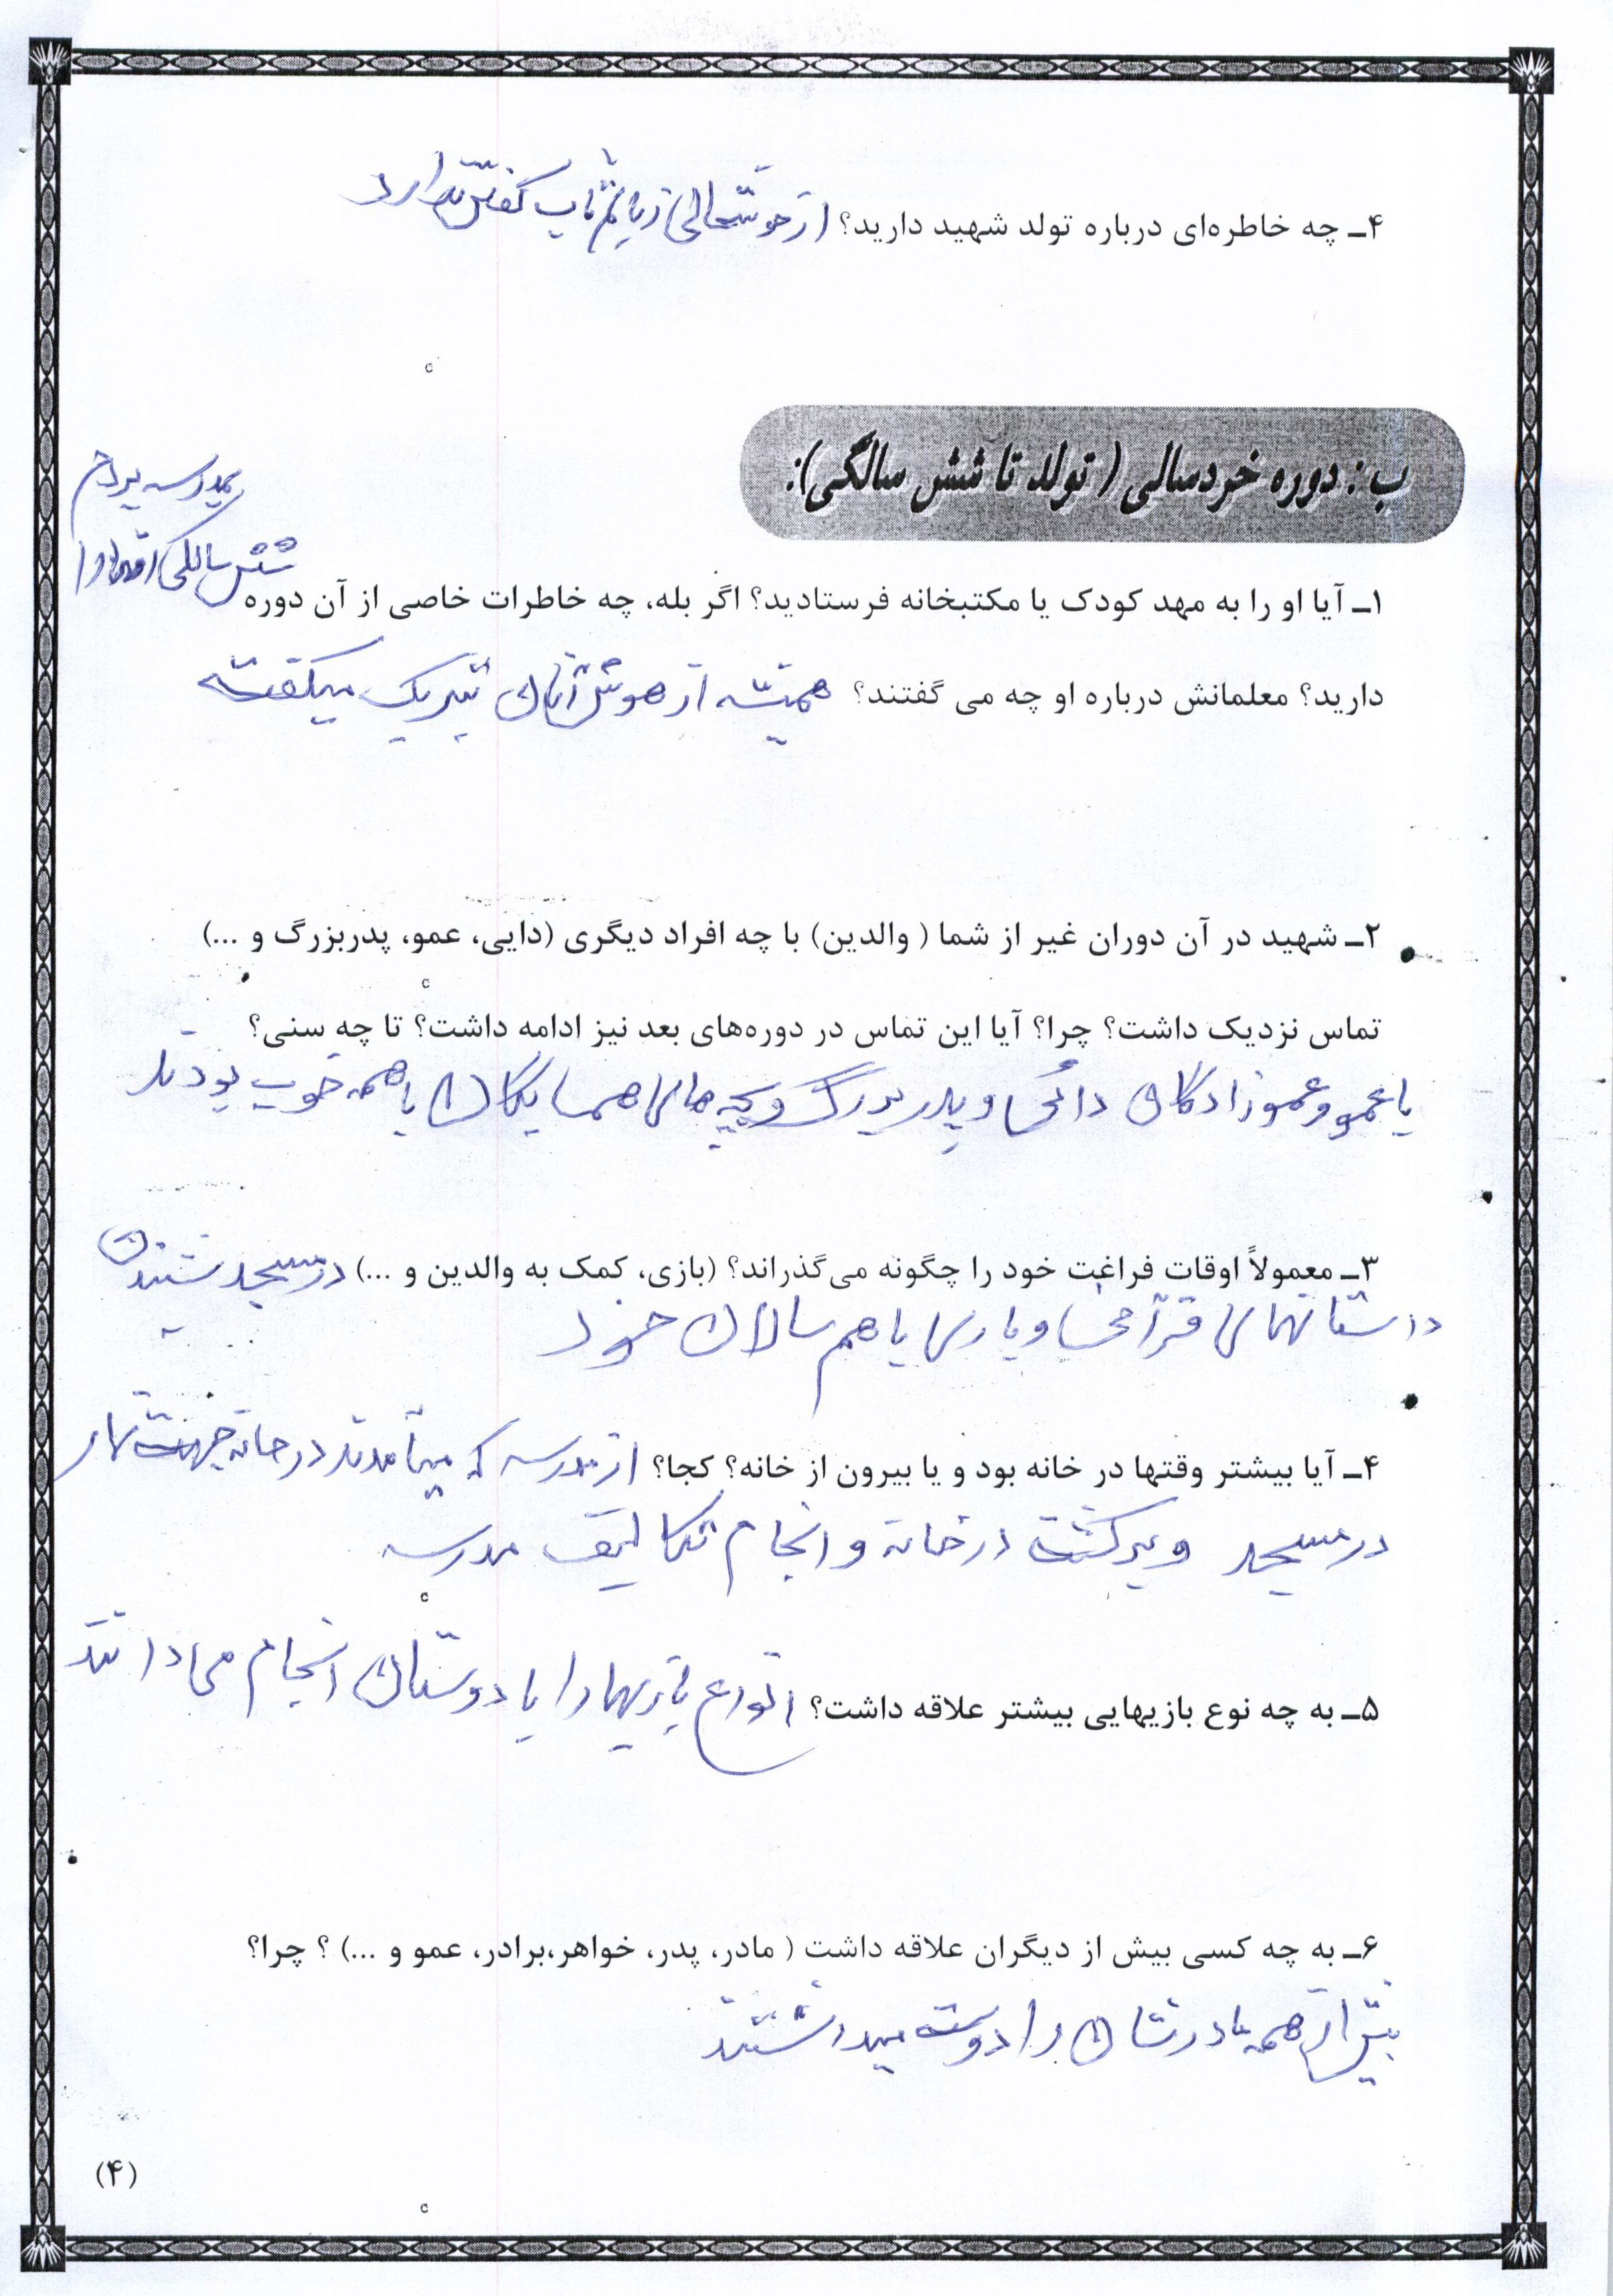 ۴ـ چه خاطره‌ای درباره تولد شهید دارید؟ از خوشحالی زبانم تاب گفتن ندارد
ب : دوره خردسالی ( تولد تا شش سالگی):
بمدرسه بردم
شش سالگی او را
۱ـ آیا او را به مهد کودک یا مکتبخانه فرستادید؟ اگر بله، چه خاطرات خاصی از آن دوره
دارید؟ معلمانش درباره او چه می گفتند؟ همیشه از هوش آنان تبریک میگفته
۲ـ شهید در آن دوران غیر از شما ( والدین) با چه افراد دیگری (دایی، عمو، پدربزرگ و ...)
تماس نزدیک داشت؟ چرا؟ آیا این تماس در دوره‌های بعد نیز ادامه داشت؟ تا چه سنی؟
با عمو و عموزادگان دائی و پدربزرگ و بچه های همسایگان با همه خوب بودند
۳ـ معمولاً اوقات فراغت خود را چگونه می‌گذراند؟ (بازی، کمک به والدین و ...) در مسجد شنیدن
داستانهای قرآنی و بازی با هم سالان خود
۴ـ آیا بیشتر وقتها در خانه بود و یا بیرون از خانه؟ کجا؟ از مدرسه که میآمدند در خانه جهت نماز
در مسجد و برگشت در خانه و انجام تکالیف مدرسه
۵ـ به چه نوع بازیهایی بیشتر علاقه داشت؟ انواع بازیها را با دوستان انجام می دادند
۶ـ به چه کسی بیش از دیگران علاقه داشت ( مادر، پدر، خواهر،برادر، عمو و ...) ؟ چرا؟
بیش از همه مادرشان را دوست میداشتند
(۴)